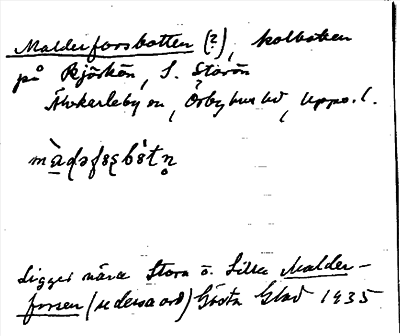 Malderforsbotten (?), kolbotten
på Björkön, S. Storön
Älvkarleby sn, Örbyhus hd, Upps. l.
Ligger nära Stora o. Lilla Malder-
forsen (se dessa ord) Gösta Glad 1935